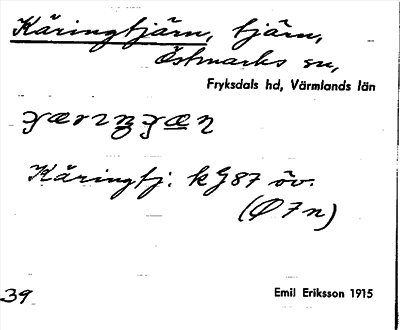 Käringtjärn, tjärn,
Östmarks sn,
Fryksdals hd, Värmlands län
Käringtj. k G87 öv.
(Ø7n)
39
Emil Eriksson 1915